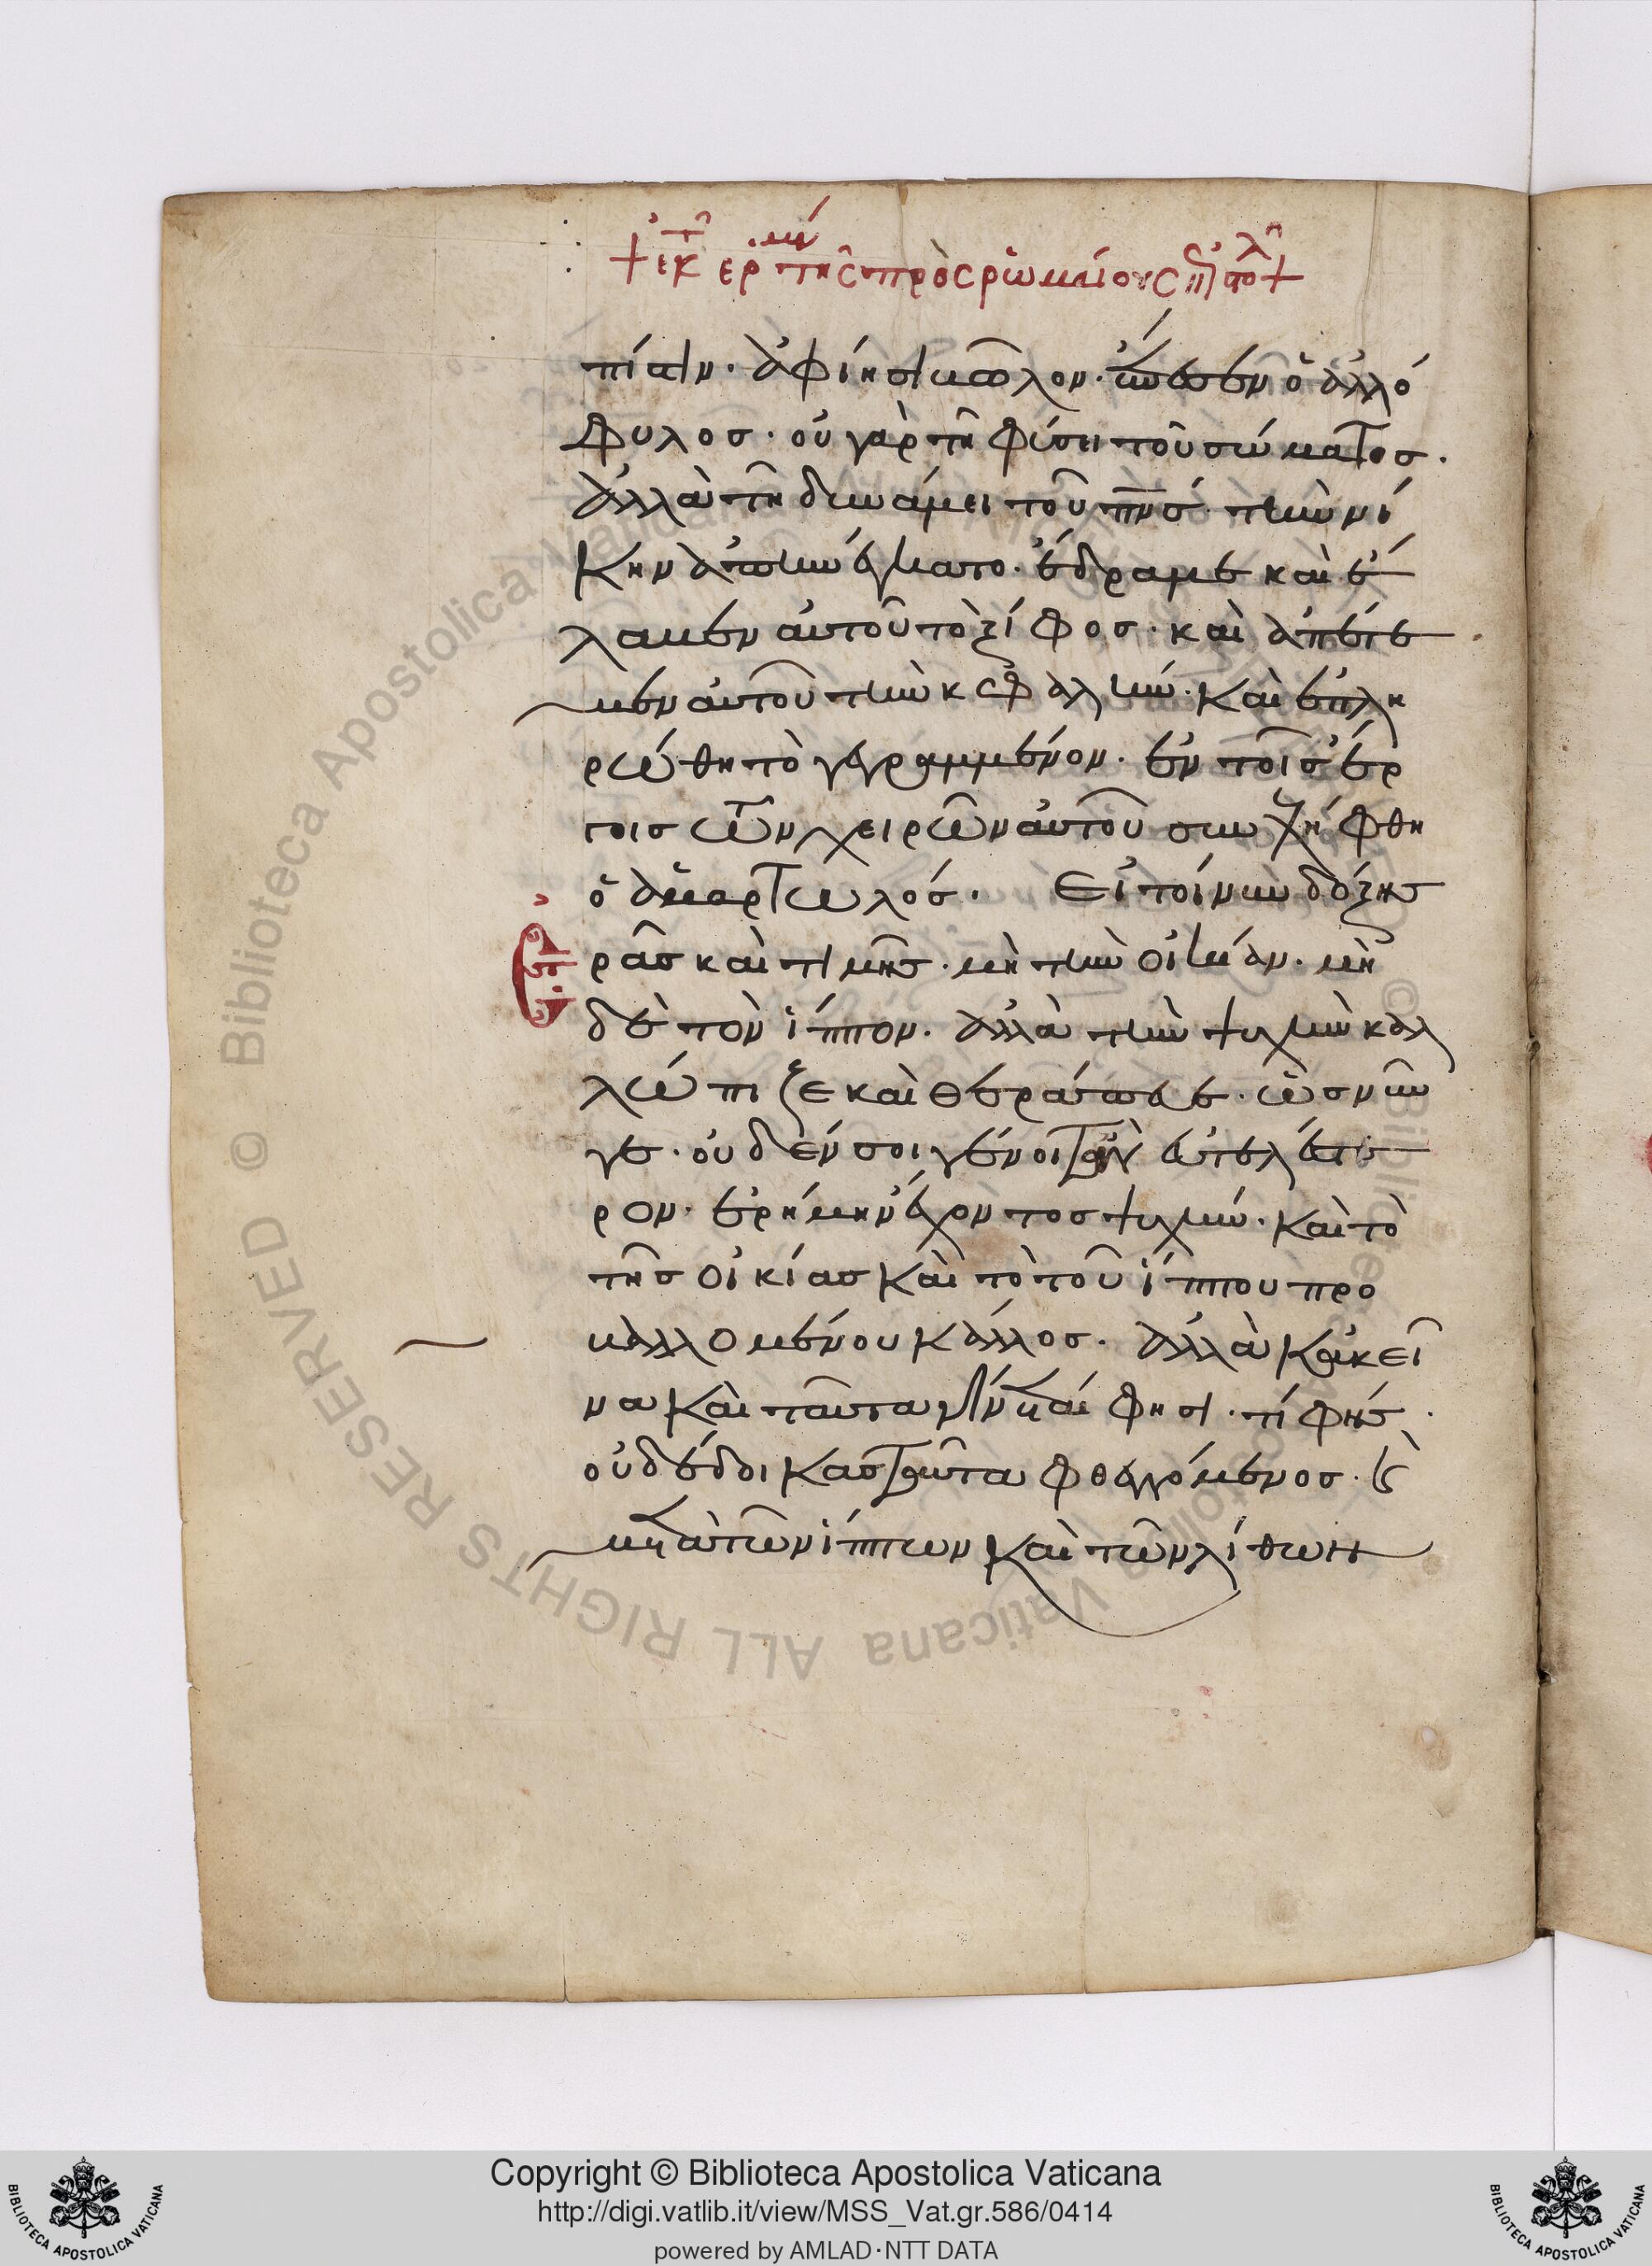 + ἐκ τ ἑρμην τῆς πρὸς ῥωμαίους ἐπιστολ +
πίστιν· ἀφίησι βῶλον· ἔπεσεν ὁ ἀλλό
φυλοσ· οὐ γὰρ τῆ φύσει τοῦ σώματοσ·
ἀλλὰ τῆ δυνάμει τοῦ πνσ τὴν νί
κην ἀπηνέγκατο· ἔδραμε καὶ ἔ
λαβεν αὐτοῦ τὸ ξίφοσ· καὶ ἀπέτε
μεν αὐτοῦ τὴν κεφαλήν· καὶ ἐπλη
ρώθη τὸ γεγραμμένον· ἐν τοῖσ ἔρ
γοισ τῶν χειρῶν αὐτοῦ συνελήφθη
ὁ ἁμαρτωλόσ· Εἰ τοίνυν δόξησ
ἐρᾶσ καὶ τιμῆσ· μὴ τὴν οἰκίαν· μὴ
δὲ τὸν ἵππον· ἀλλὰ τὴν ψυχὴν καλ
λώπιζε καὶ θεράπευε· ὡσ νῦν
γε· οὐδέν σοι γένοιτ' ἂν εὐτελέστε
ρον· ἐρήμην ἔχοντοσ ψυχήν· καὶ τὸ
τῆσ οἰκίασ καὶ τὸ τοῦ ἵππου προ
βαλλομένου κάλλοσ· ἀλλὰ κἀκεῖ
να καὶ ταῦτα γίνεται φησι· τί φήσ·
οὐ δέδοικασ ταῦτα φθεγγόμενοσ·
μετὰ τῶν ἵππων καὶ τῶν λίθων
Copyright © Biblioteca Apostolica Vaticana
http://digi.vatlib.it/view/MSS_Vat.gr.586/0414
powered by AMLAD·NTT DATA
BIBLIOTECA APOSTOLICA VATICANA
BIBLIOTECA APOSTOLICA VATICANA
© Biblioteca Apostolica Vaticana ALL RIGHTS RESERVED